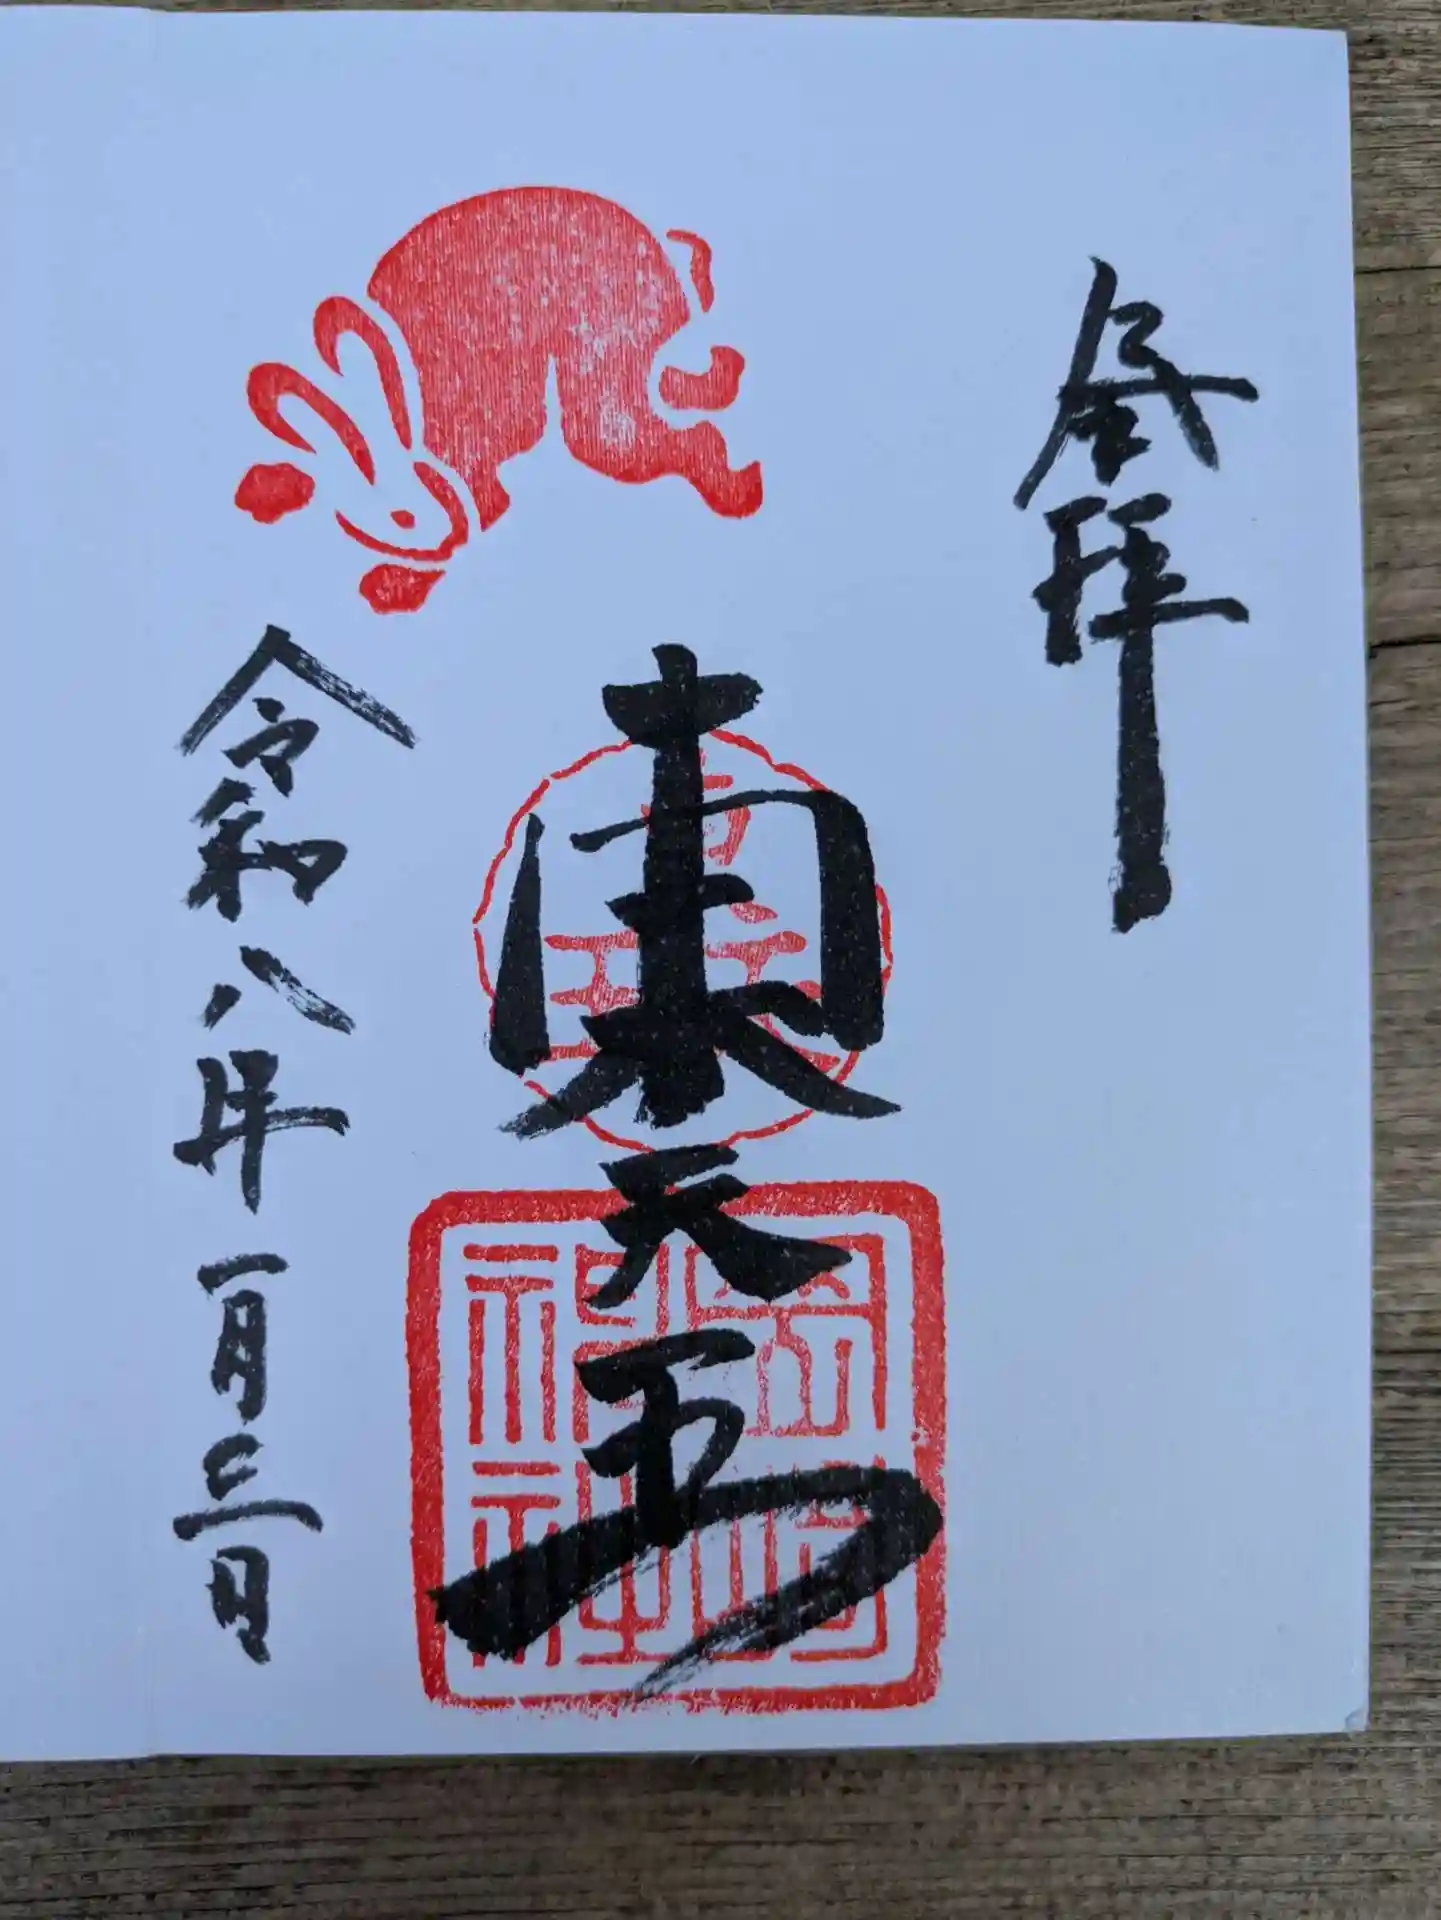 参拝
東天王
岡崎
神社
令和八年一月三日